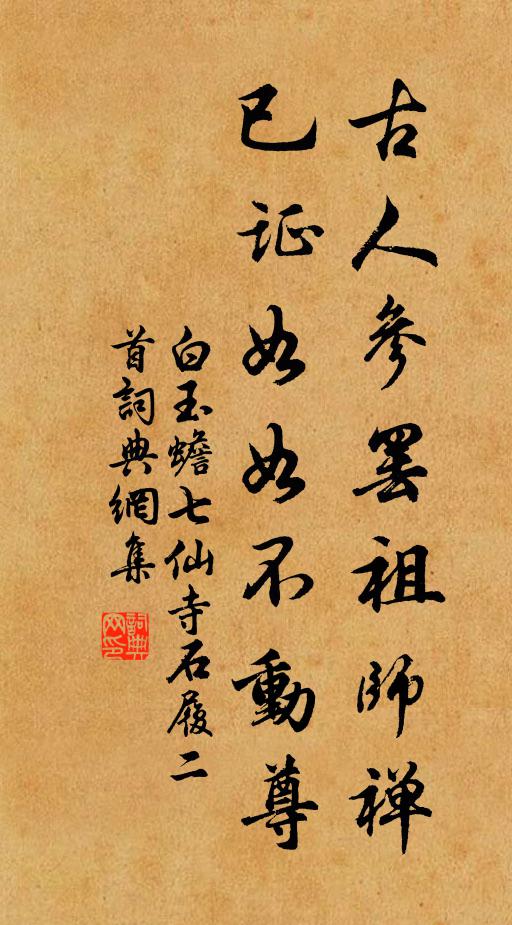 古人參罢祖師禅
已证如如不動尊
白玉蟾七仙寺石履二
首詞典網集
詞典
网印